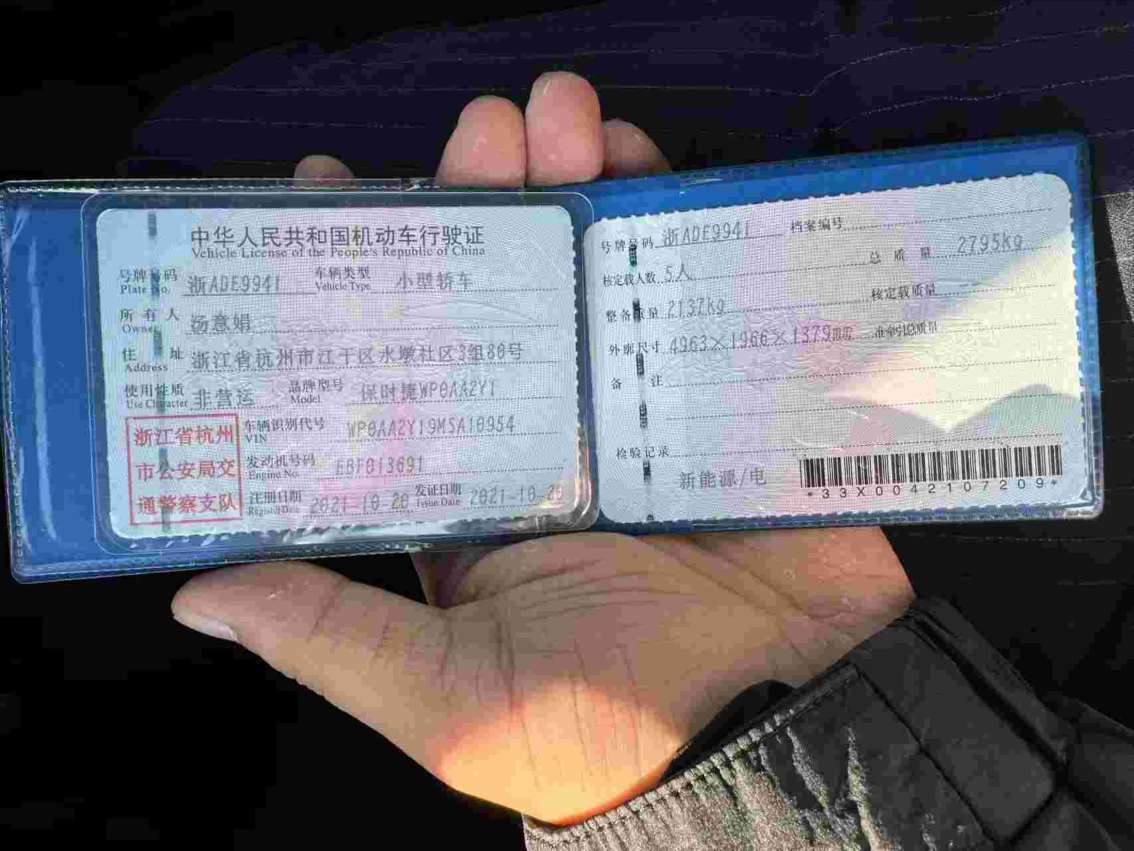 中华人民共和国机动车行驶证
Vehicle License of the People's Republic of China
号牌号码 浙ADE9941 车辆类型 小型轿车
Plate No. Vehicle Type
所有人 汤意娟
Owner
住址 浙江省杭州市江干区水墩社区3组80号
Address
使用性质 非营运 品牌型号 保时捷WP0AA2Y1
Use Character Model
浙江省杭州
市公安局交
通警察支队
车辆识别代号 WP0AA2Y19MSA10954
VIN
发动机号码 EBF013691
Engine No.
注册日期 2021-10-20 发证日期 2021-10-20
Register Date Issue Date
号牌号码 浙ADE9941 档案编号
核定载人数 5人 总质量 2795kg
整备质量 2137kg 核定载质量
外廓尺寸 4963×1966×1379 准牵引总质量
备注
检验记录
新能源/电
*33X0042107209*